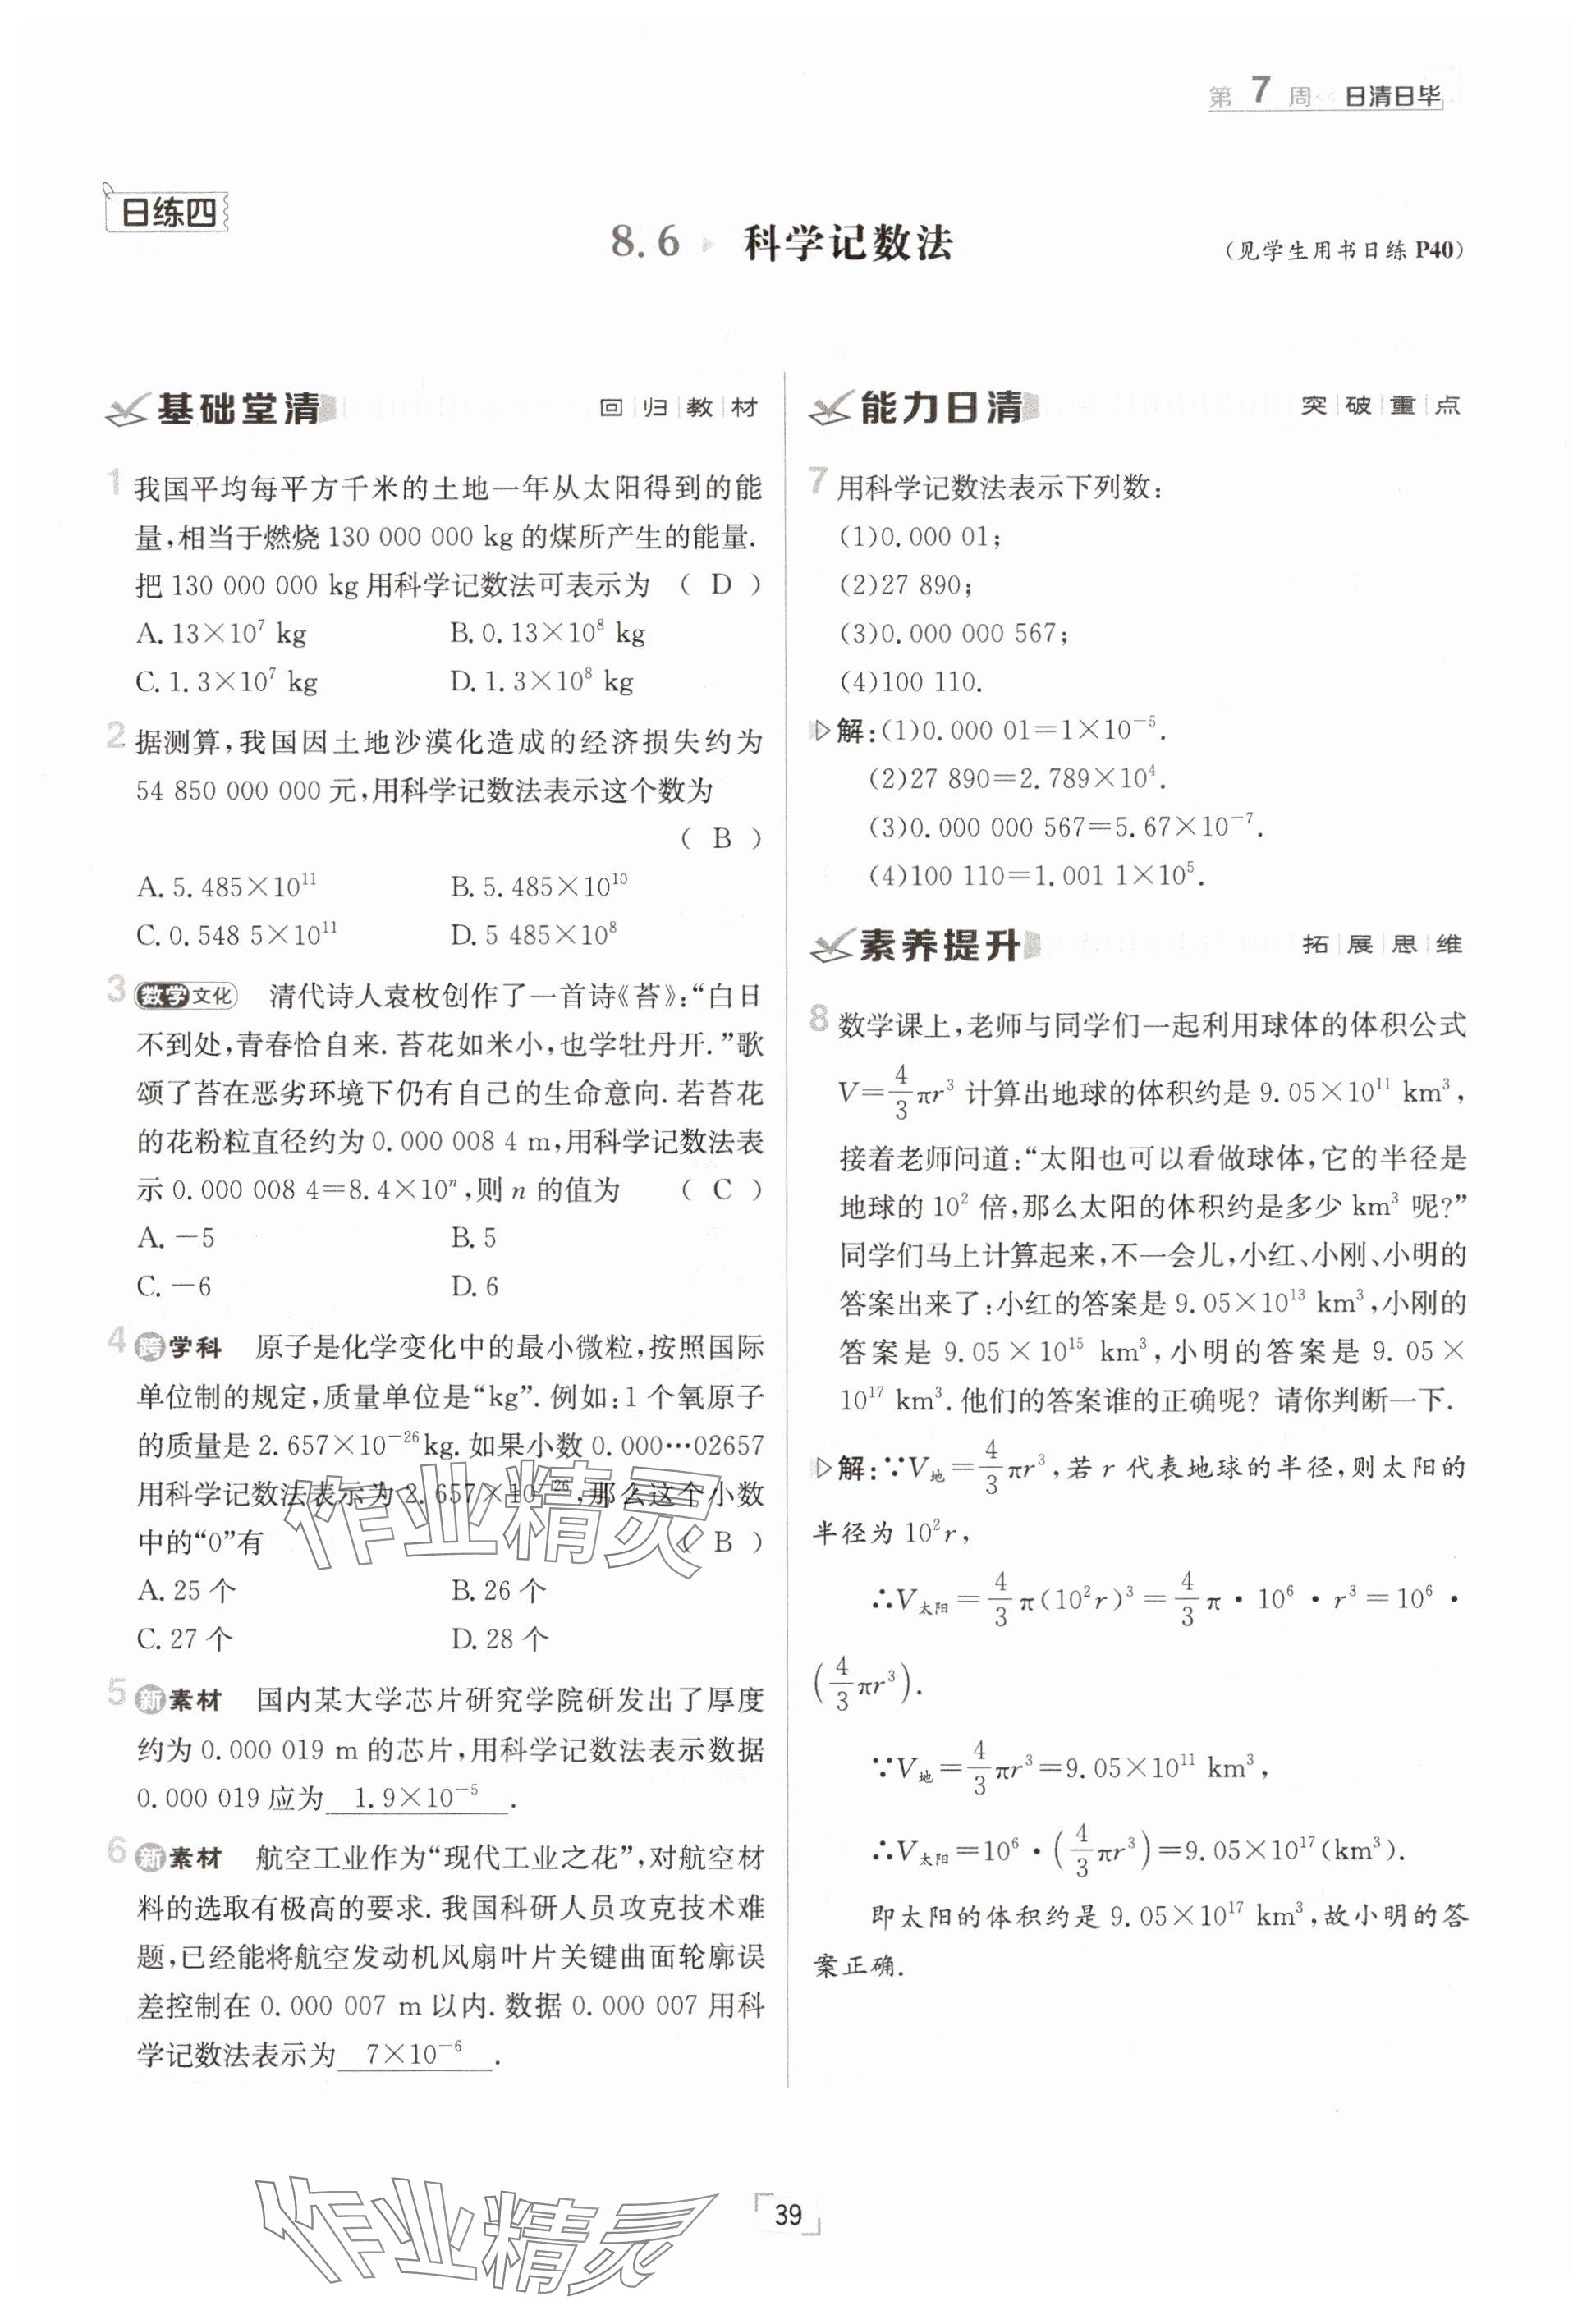 第 7 周 << 日清日毕
日练四
8.6 科学记数法
(见学生用书日练 P40)
基础堂清 回|归|教|材
1 我国平均每平方千米的土地一年从太阳得到的能
量,相当于燃烧 130 000 000 kg 的煤所产生的能量.
把 130 000 000 kg 用科学记数法可表示为 ( D )
A. 13×10⁷ kg B. 0.13×10⁸ kg
C. 1.3×10⁷ kg D. 1.3×10⁸ kg
2 据测算,我国因土地沙漠化造成的经济损失约为
54 850 000 000 元,用科学记数法表示这个数为
( B )
A. 5.485×10¹¹ B. 5.485×10¹⁰
C. 0.548 5×10¹¹ D. 5 485×10⁸
3 数学文化 清代诗人袁枚创作了一首诗《苔》:“白日
不到处,青春恰自来.苔花如米小,也学牡丹开.”歌
颂了苔在恶劣环境下仍有自己的生命意向.若苔花
的花粉粒直径约为 0.000 008 4 m,用科学记数法表
示 0.000 008 4=8.4×10ⁿ,则 n 的值为 ( C )
A. −5 B. 5
C. −6 D. 6
4 跨学科 原子是化学变化中的最小微粒,按照国际
单位制的规定,质量单位是“kg”.例如:1 个氧原子
的质量是 2.657×10⁻²⁶kg.如果小数 0.000…02657
用科学记数法表示为 2.657×10⁻²⁶,那么这个小数
中的“0”有 ( B )
A. 25 个 B. 26 个
C. 27 个 D. 28 个
5 新素材 国内某大学芯片研究学院研发出了厚度
约为 0.000 019 m 的芯片,用科学记数法表示数据
0.000 019 应为 1.9×10⁻⁵ .
6 新素材 航空工业作为“现代工业之花”,对航空材
料的选取有极高的要求.我国科研人员攻克技术难
题,已经能将航空发动机风扇叶片关键曲面轮廓误
差控制在 0.000 007 m 以内.数据 0.000 007 用科
学记数法表示为 7×10⁻⁶ .
能力日清 突|破|重|点
7 用科学记数法表示下列数:
(1)0.000 01;
(2)27 890;
(3)0.000 000 567;
(4)100 110.
▷解:(1)0.000 01=1×10⁻⁵.
(2)27 890=2.789×10⁴.
(3)0.000 000 567=5.67×10⁻⁷.
(4)100 110=1.001 1×10⁵.
素养提升 拓|展|思|维
8 数学课上,老师与同学们一起利用球体的体积公式
V=4/3πr³ 计算出地球的体积约是 9.05×10¹¹ km³,
接着老师问道:“太阳也可以看做球体,它的半径是
地球的 10² 倍,那么太阳的体积约是多少 km³ 呢?”
同学们马上计算起来,不一会儿,小红、小刚、小明的
答案出来了:小红的答案是 9.05×10¹³ km³,小刚的
答案是 9.05×10¹⁵ km³,小明的答案是 9.05×
10¹⁷ km³.他们的答案谁的正确呢? 请你判断一下.
▷解:∵V地=4/3πr³,若 r 代表地球的半径,则太阳的
半径为 10²r,
∴V太阳=4/3π(10²r)³=4/3π·10⁶·r³=10⁶·
(4/3πr³).
∵V地=4/3πr³=9.05×10¹¹ km³,
∴V太阳=10⁶·(4/3πr³)=9.05×10¹⁷(km³).
即太阳的体积约是 9.05×10¹⁷ km³,故小明的答
案正确.
作业精灵
作业精灵
39